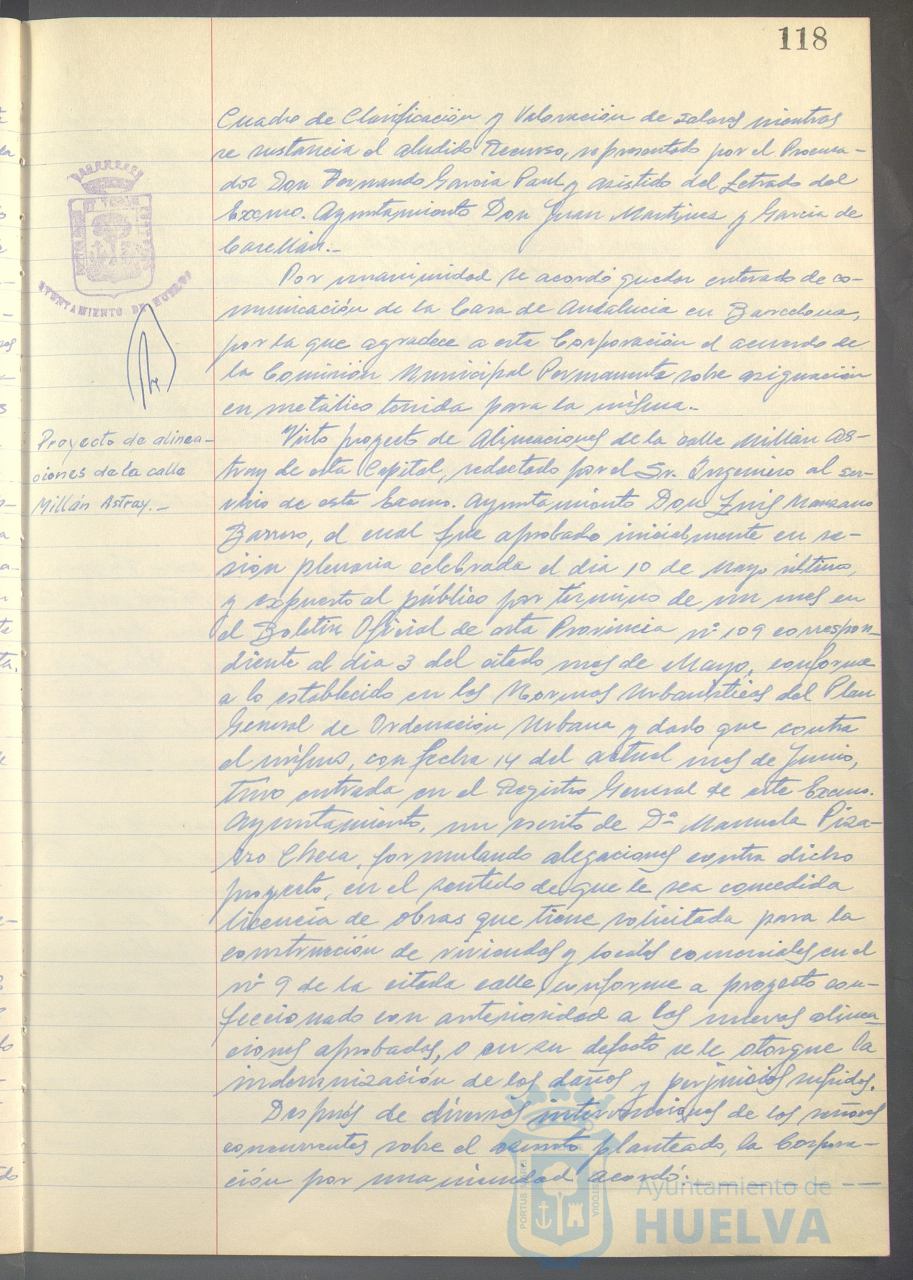 118
Cuadro de Clasificación y Valoración de solares mientras
se sustancia el aludido Recurso, representado por el Procura-
dor Don Fernando García Paul y asistido del Letrado del
Excmo. Ayuntamiento Don Juan Martínez y García de
Casellán.-
Por unanimidad se acordó quedar enterado de co-
municación de la Casa de Andalucía en Barcelona,
por la que agradece a esta Corporación el acuerdo de
la Comisión Municipal Permanente sobre asignación
en metálico tenida para la misma.-
AYUNTAMIENTO DE HUELVA
Proyecto de alinea-
ciones de la calle
Millán Astray.-
Visto proyecto de Alineaciones de la calle Millán As-
tray de esta Capital, redactado por el Sr. Ingeniero al ser-
vicio de este Excmo. Ayuntamiento Don Luis Manzano
Barrero, el cual fue aprobado inicialmente en se-
sión plenaria celebrada el día 10 de Mayo último,
y expuesto al público por término de un mes en
el Boletín Oficial de esta Provincia nº 109 correspon-
diente al día 3 del citado mes de Mayo, conforme
a lo establecido en las Normas Urbanísticas del Plan
General de Ordenación Urbana y dado que contra
el mismo, con fecha 14 del actual mes de Junio,
tuvo entrada en el Registro General de este Excmo.
Ayuntamiento, un escrito de Dª Manuela Piza-
rro Checa, formulando alegaciones contra dicho
proyecto, en el sentido de que le sea concedida
licencia de obras que tiene solicitada para la
construcción de viviendas y locales comerciales en el
nº 9 de la citada calle, conforme a proyecto con-
feccionado con anterioridad a las nuevas alinea-
ciones aprobadas, o en su defecto se le otorgue la
indemnización de los daños y perjuicios sufridos.
Después de diversas intervenciones de los señores
concurrentes sobre el asunto planteado, la Corpora-
ción por unanimidad acordó:
Ayuntamiento de
HUELVA